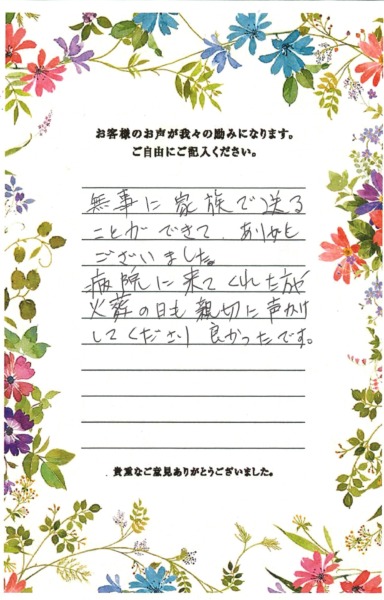 お客様のお声が我々の励みになります。
ご自由にご記入ください。
無事に家族で送る
ことができて、ありがと
ございました。
病院に来てくれた方が
火葬の日も親切に声かけ
してくださり良かったです。
貴重なご意見ありがとうございました。